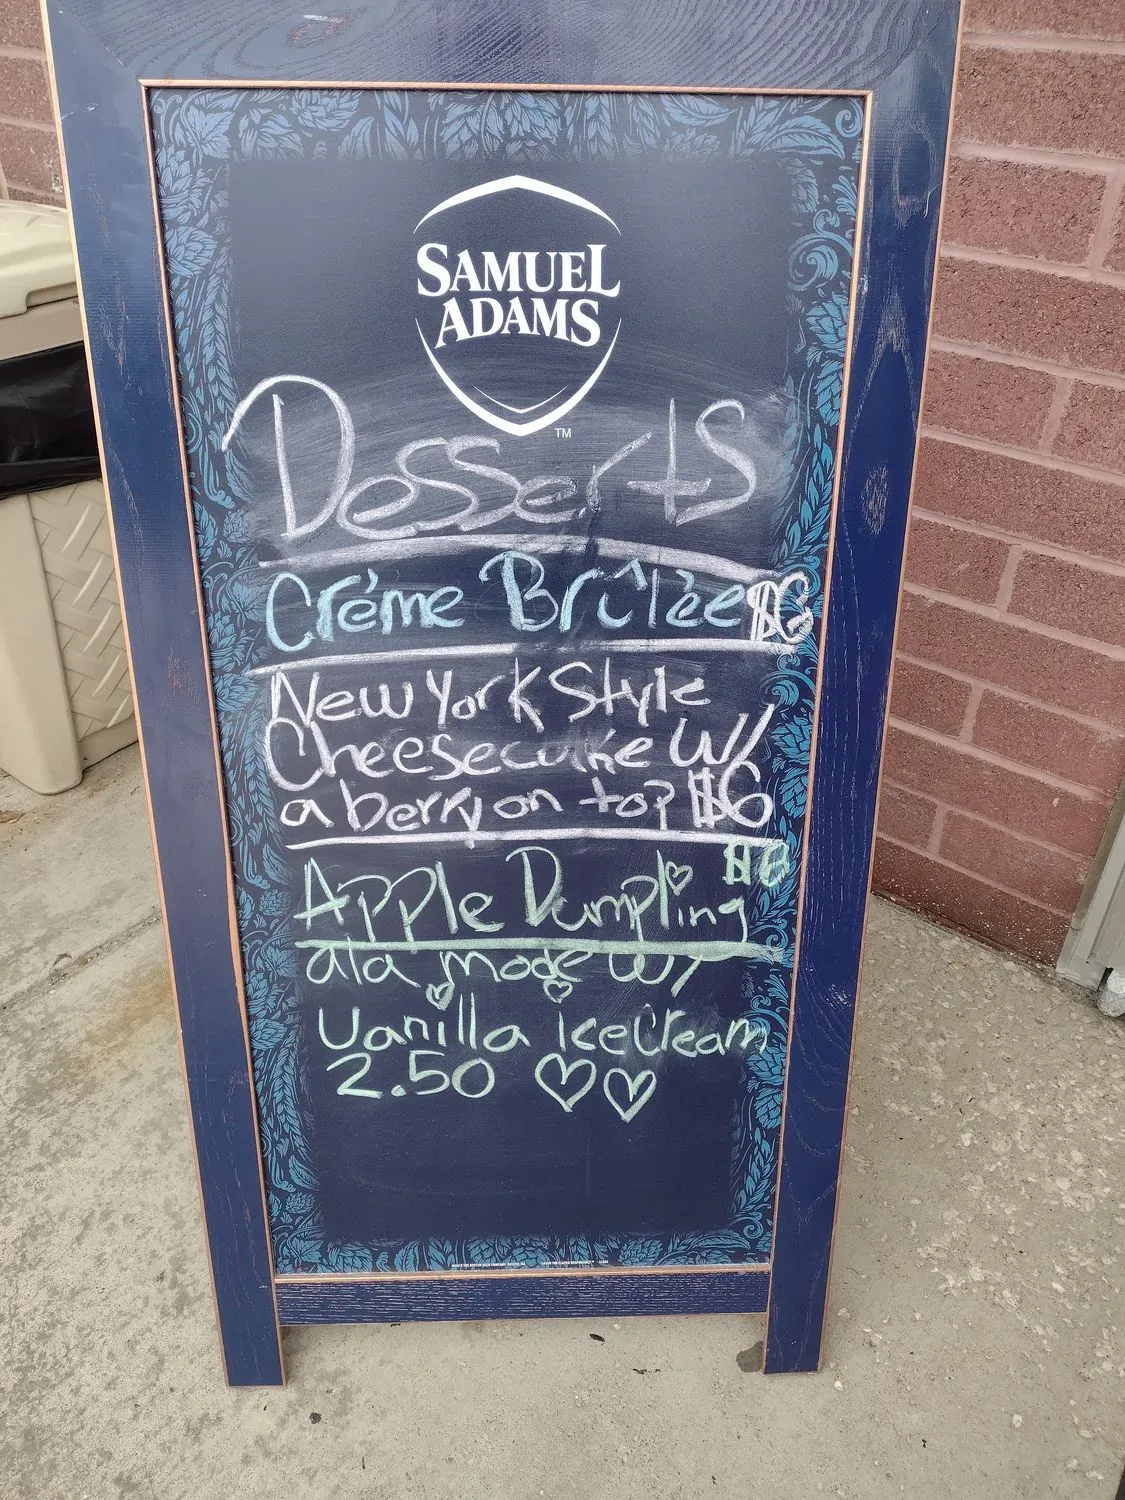 SAMUEL
ADAMS
TM
Desserts
Créme Brûlèe $6
New York Style
Cheesecake w/
a berry on top $6
$6
Apple Dumpling
ala mode w/
Vanilla icecream
2.50